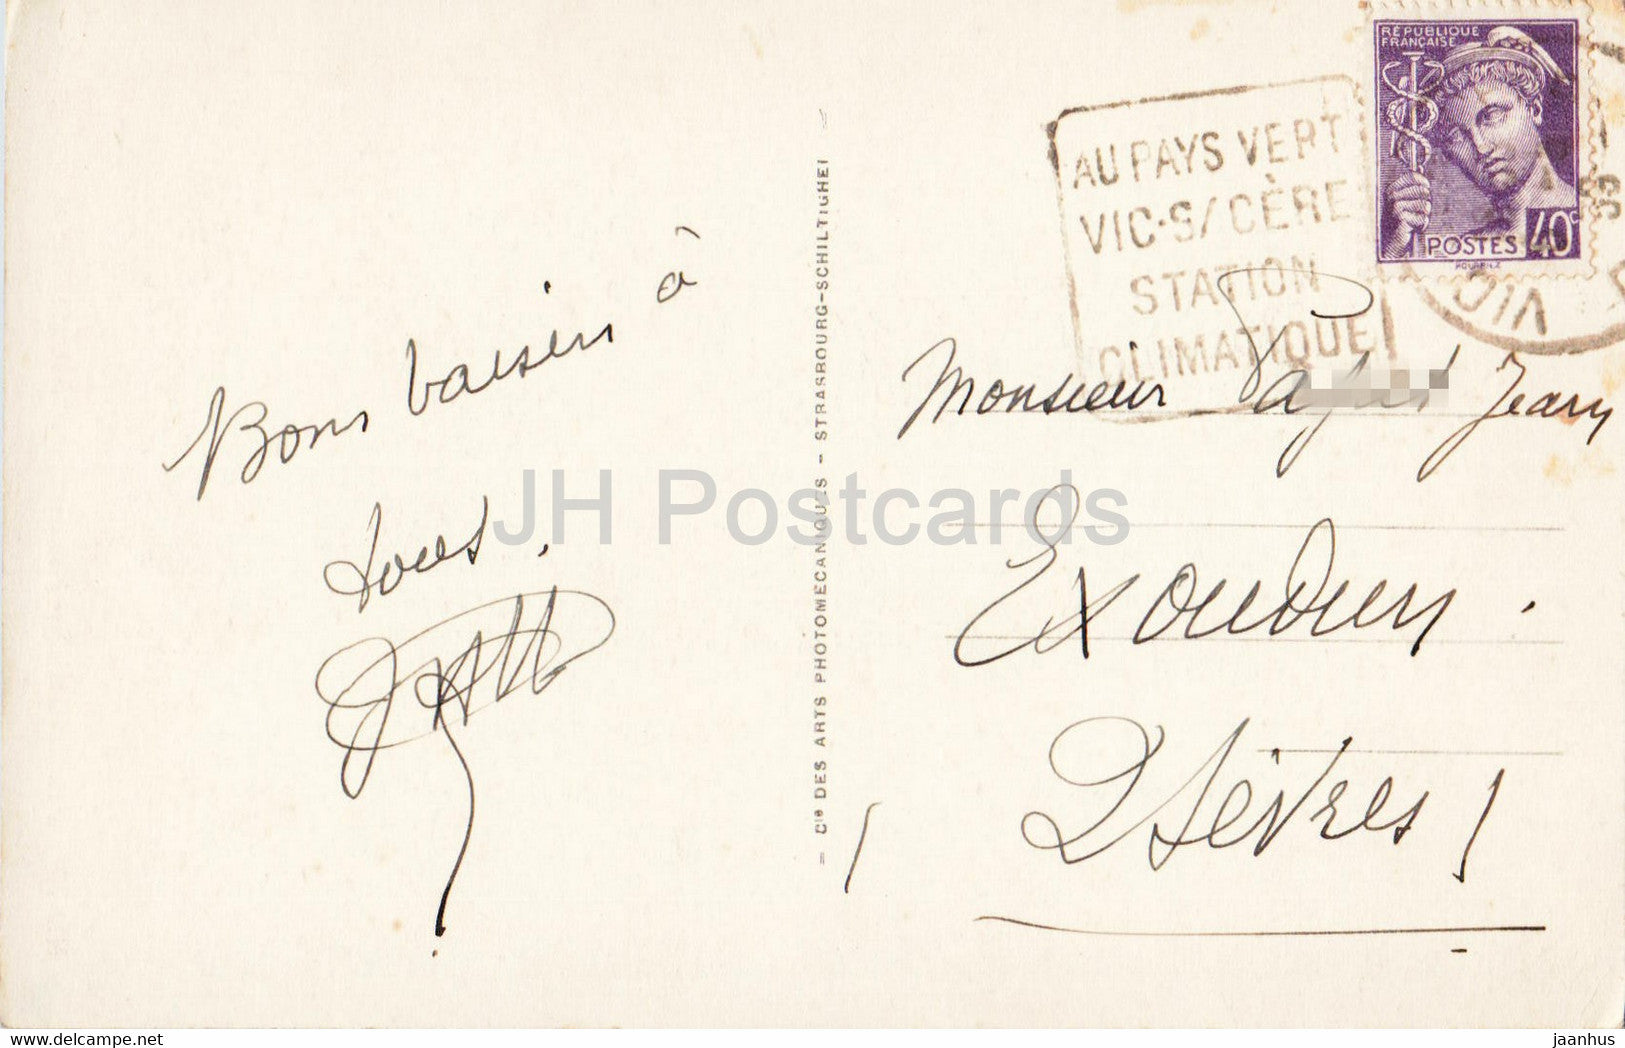 Bons baisers à
tous.
Cie DES ARTS PHOTOMECANIQUES - STRASBOURG-SCHILTIGHEI
AU PAYS VERT
VIC-S/CÈRE
STATION
CLIMATIQUE
RÉPUBLIQUE
FRANÇAISE
POSTES 40c
HOURRIEZ
VIC
Monsieur Jean
Exoudun.
2 Sèvres
JH Postcards
jaanhus @ delcampe.net